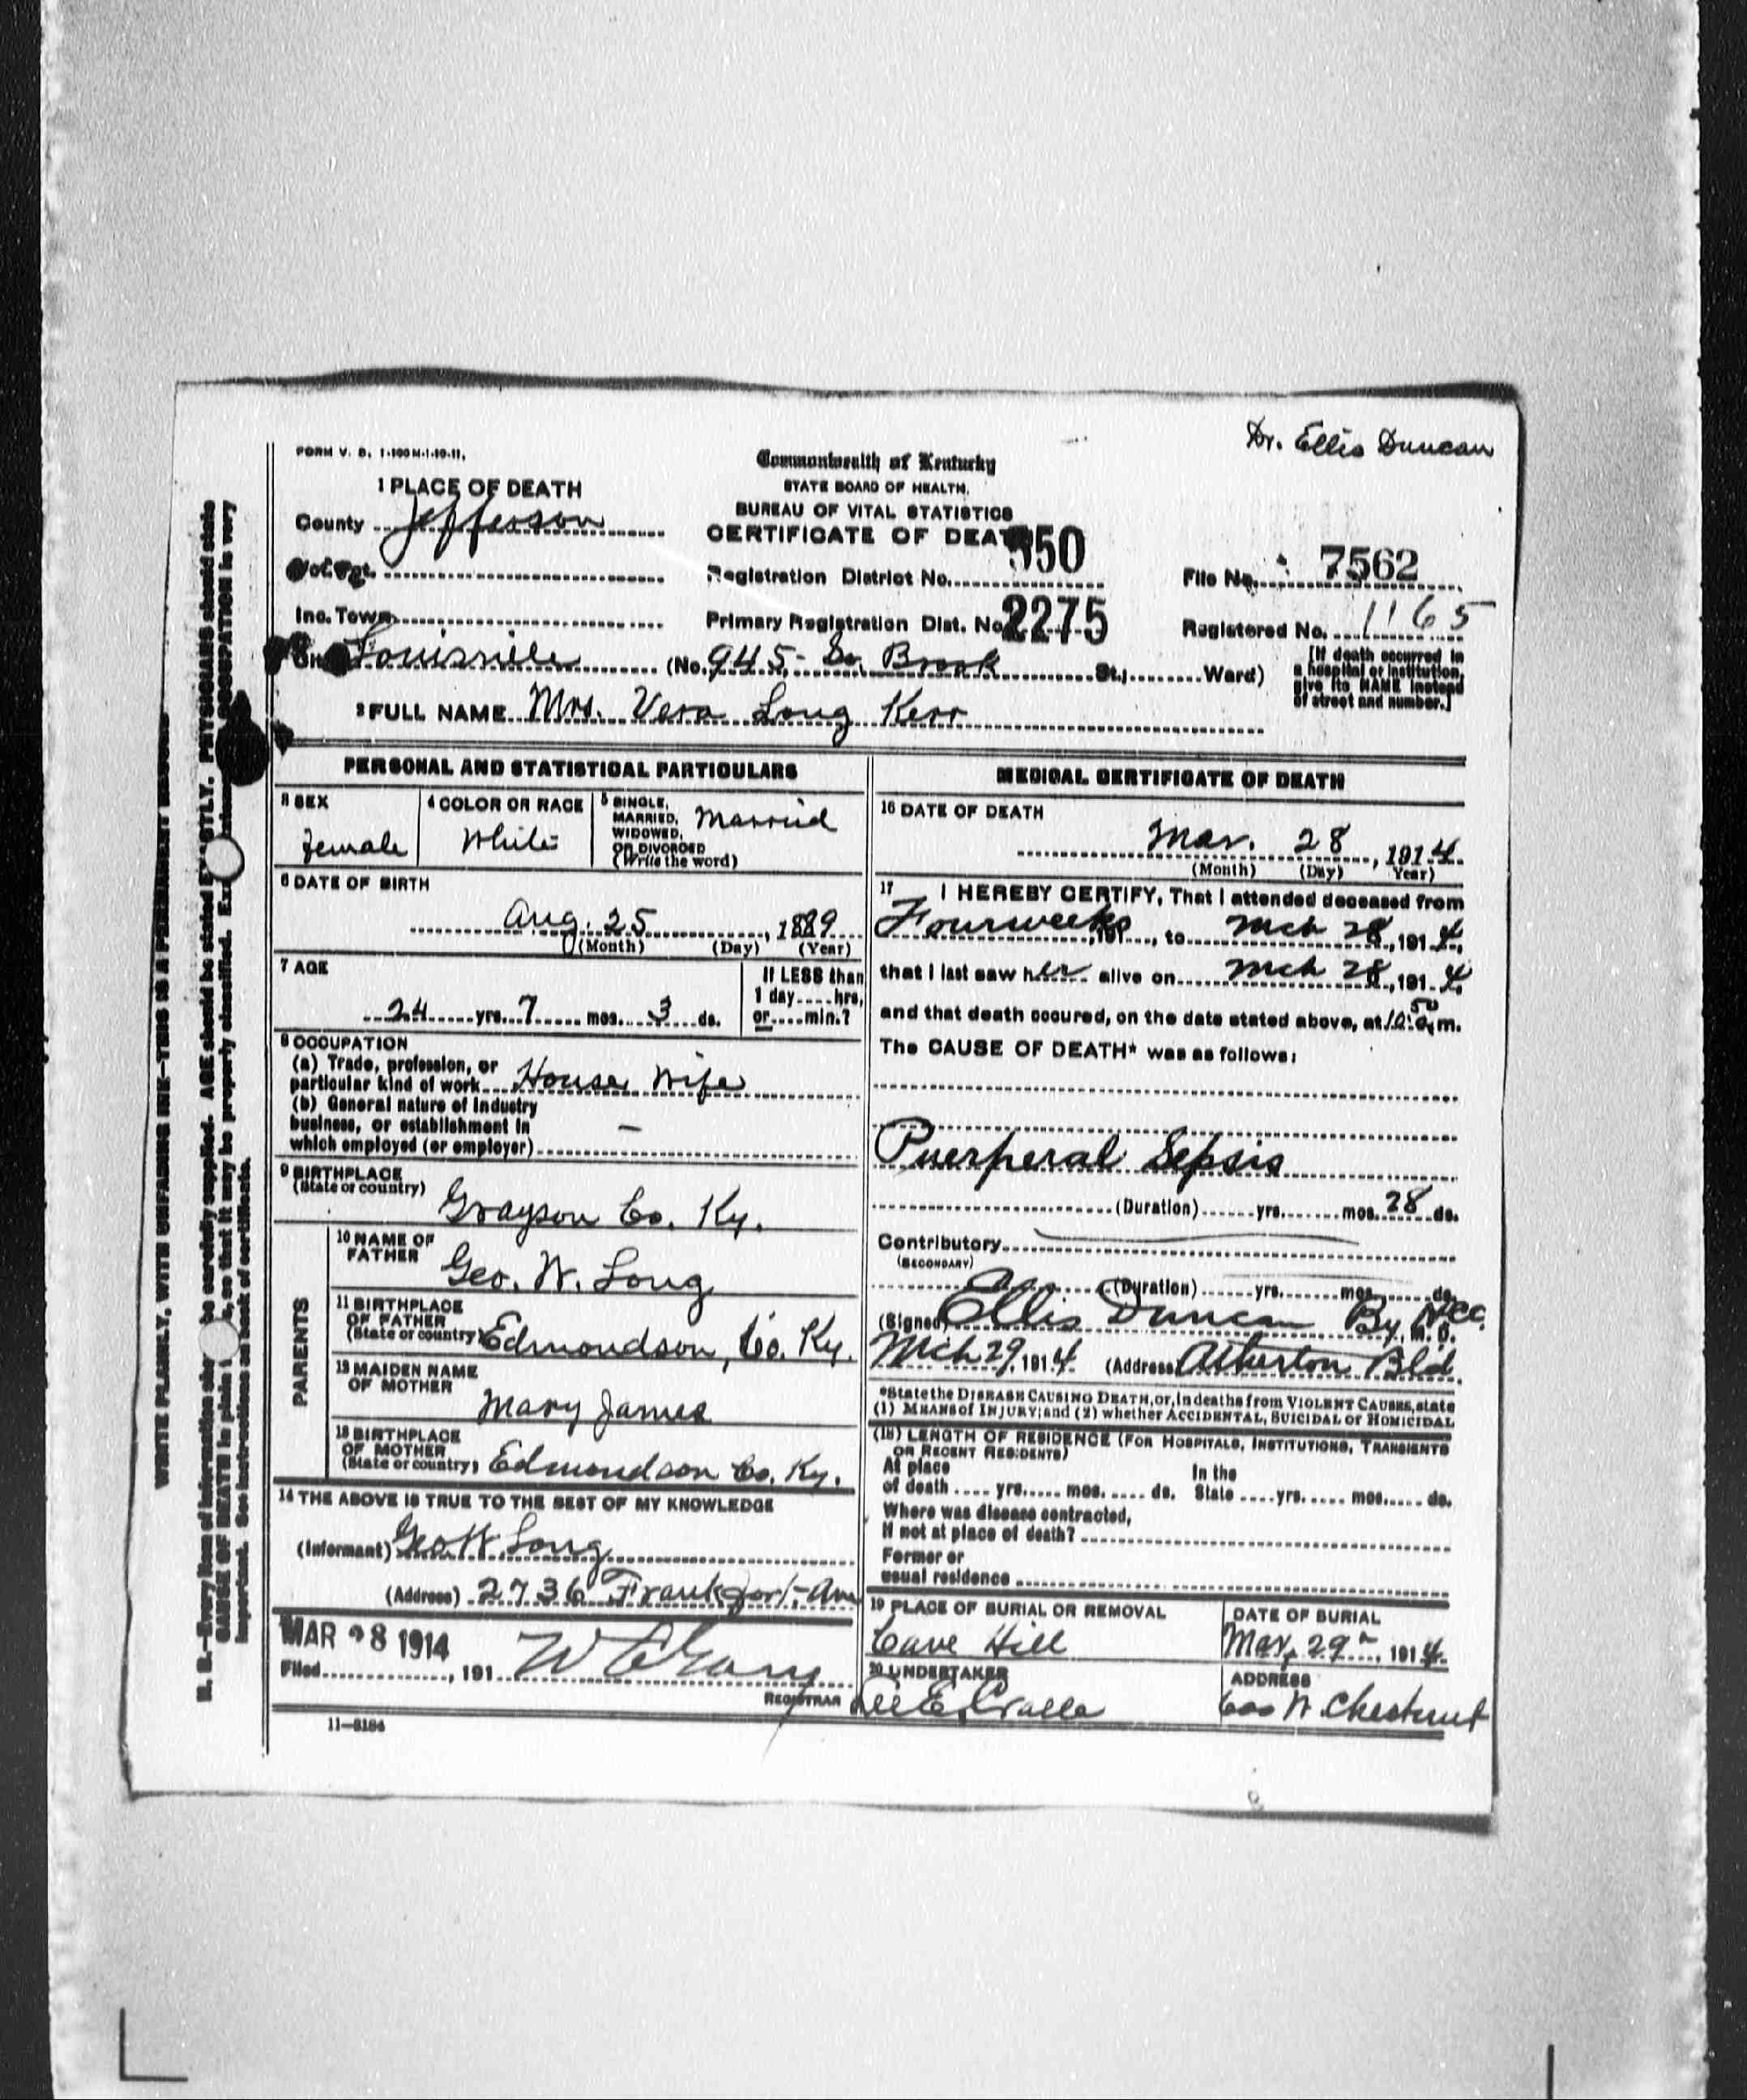 Dr. Ellis Duncan
FORM V. S. 1-100M-1-10-11.
Commonwealth of Kentucky
STATE BOARD OF HEALTH.
BUREAU OF VITAL STATISTICS
CERTIFICATE OF DEATH
1 PLACE OF DEATH
County Jefferson
Vot. Pct.
Inc. Town
City Louisville (No. 945 So. Brook St.; Ward)
Registration District No. 550
Primary Registration Dist. No. 2275
File No. 7562
Registered No. 1165
[If death occurred in
a hospital or institution,
give its NAME instead
of street and number.]
2 FULL NAME Mrs. Vera Long Kerr
PERSONAL AND STATISTICAL PARTICULARS
3 SEX
Female
4 COLOR OR RACE
White
5 SINGLE,
MARRIED,
WIDOWED,
OR DIVORCED
(Write the word)
Married
6 DATE OF BIRTH
Aug. 25, 1889
(Month) (Day) (Year)
7 AGE
24 yrs. 7 mos. 3 ds.
If LESS than
1 day....hrs.
or....min.?
8 OCCUPATION
(a) Trade, profession, or
particular kind of work House Wife
(b) General nature of Industry
business, or establishment in
which employed (or employer) –
9 BIRTHPLACE
(State or country) Grayson Co. Ky.
PARENTS
10 NAME OF
FATHER Geo. W. Long
11 BIRTHPLACE
OF FATHER
(State or country) Edmondson, Co. Ky.
12 MAIDEN NAME
OF MOTHER Mary James
13 BIRTHPLACE
OF MOTHER
(State or country) Edmondson Co. Ky.
14 THE ABOVE IS TRUE TO THE BEST OF MY KNOWLEDGE
(Informant) Geo W Long
(Address) 2736 Frankfort Ave
MAR 28 1914
Filed, 191
REGISTRAR
11-3184
MEDICAL CERTIFICATE OF DEATH
16 DATE OF DEATH
Mar. 28, 1914
(Month) (Day) (Year)
17 I HEREBY CERTIFY, That I attended deceased from
Four weeks, 191, to Mch 28, 1914,
that I last saw her alive on Mch 28, 1914
and that death occured, on the date stated above, at 10:50 m.
The CAUSE OF DEATH* was as follows:
Puerperal Sepsis
(Duration) yrs. mos. 28 ds.
Contributory
(SECONDARY)
(Duration) yrs. mos. ds.
(Signed) Ellis Duncan By M.D.
Mch 29, 1914 (Address) Atherton Bld.
*State the DISEASE CAUSING DEATH, or, in deaths from VIOLENT CAUSES, state
(1) MEANS of INJURY; and (2) whether ACCIDENTAL, SUICIDAL or HOMICIDAL
(18) LENGTH OF RESIDENCE (FOR HOSPITALS, INSTITUTIONS, TRANSIENTS
OR RECENT RESIDENTS)
At place
of death .... yrs..... mos..... ds.
In the
State .... yrs..... mos..... ds.
Where was disease contracted,
If not at place of death?
Former or
usual residence
19 PLACE OF BURIAL OR REMOVAL
Cave Hill
DATE OF BURIAL
Mar, 29, 1914
20 UNDERTAKER
Lee E. Cralle
ADDRESS
6oo W. Chestnut
WRITE PLAINLY, WITH UNFADING INK—THIS IS A PERMANENT
N. B.—Every item of information be carefully supplied. AGE should be stated EXACTLY. PHYSICIANS should state
CAUSE OF DEATH in plain so that it may be properly classified. OCCUPATION is very
important. See instructions on back of certificate.